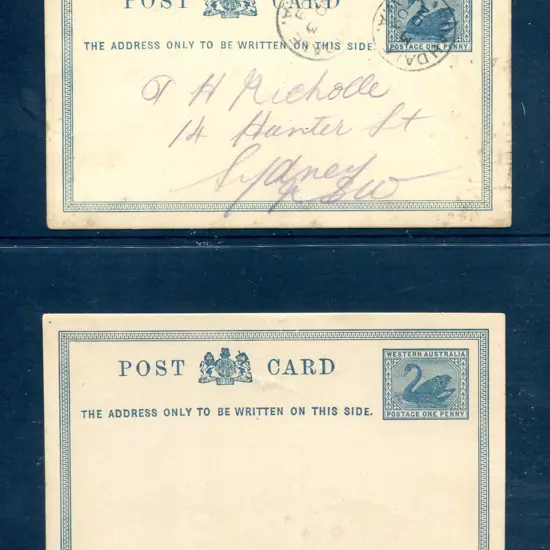 POST CARD
THE ADDRESS ONLY TO BE WRITTEN ON THIS SIDE.
POSTAGE ONE PENNY
T H Nicholle
14 Hunter St
Sydney
NSW
POST CARD
WESTERN AUSTRALIA
THE ADDRESS ONLY TO BE WRITTEN ON THIS SIDE.
POSTAGE ONE PENNY